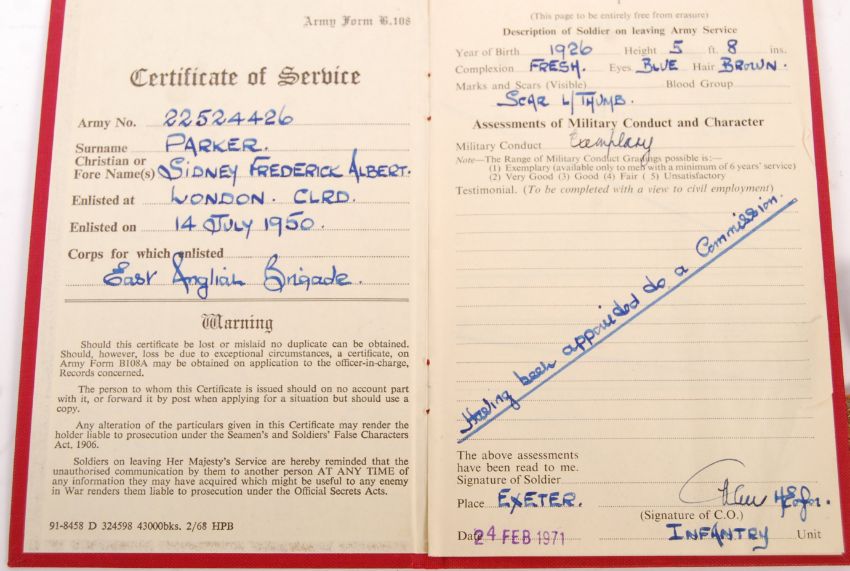 Army Form B.108
Certificate of Service
Army No. 22524426
Surname PARKER.
Christian or
Fore Name(s) SIDNEY FREDERICK ALBERT.
Enlisted at LONDON. CLRD.
Enlisted on 14 JULY 1950.
Corps for which enlisted
East Anglian Brigade.
Warning
Should this certificate be lost or mislaid no duplicate can be obtained.
Should, however, loss be due to exceptional circumstances, a certificate, on
Army Form B108A may be obtained on application to the officer-in-charge,
Records concerned.
The person to whom this Certificate is issued should on no account part
with it, or forward it by post when applying for a situation but should use a
copy.
Any alteration of the particulars given in this Certificate may render the
holder liable to prosecution under the Seamen's and Soldiers' False Characters
Act, 1906.
Soldiers on leaving Her Majesty's Service are hereby reminded that the
unauthorised communication by them to another person AT ANY TIME of
any information they may have acquired which might be useful to any enemy
in War renders them liable to prosecution under the Official Secrets Acts.
91-8458 D 324598 43000bks. 2/68 HPB
(This page to be entirely free from erasure)
Description of Soldier on leaving Army Service
Year of Birth 1926 Height 5 ft. 8 ins.
Complexion FRESH. Eyes BLUE Hair BROWN.
Marks and Scars (Visible) Blood Group
SCAR L/THUMB.
Assessments of Military Conduct and Character
Military Conduct Exemplary
Note—The Range of Military Conduct Gradings possible is:—
(1) Exemplary (available only to men with a minimum of 6 years' service)
(2) Very Good (3) Good (4) Fair (5) Unsatisfactory
Testimonial. (To be completed with a view to civil employment)
Having been appointed to a Commission.
The above assessments
have been read to me.
Signature of Soldier
Place EXETER.
(Signature of C.O.)
Date 24 FEB 1971 INFANTRY Unit